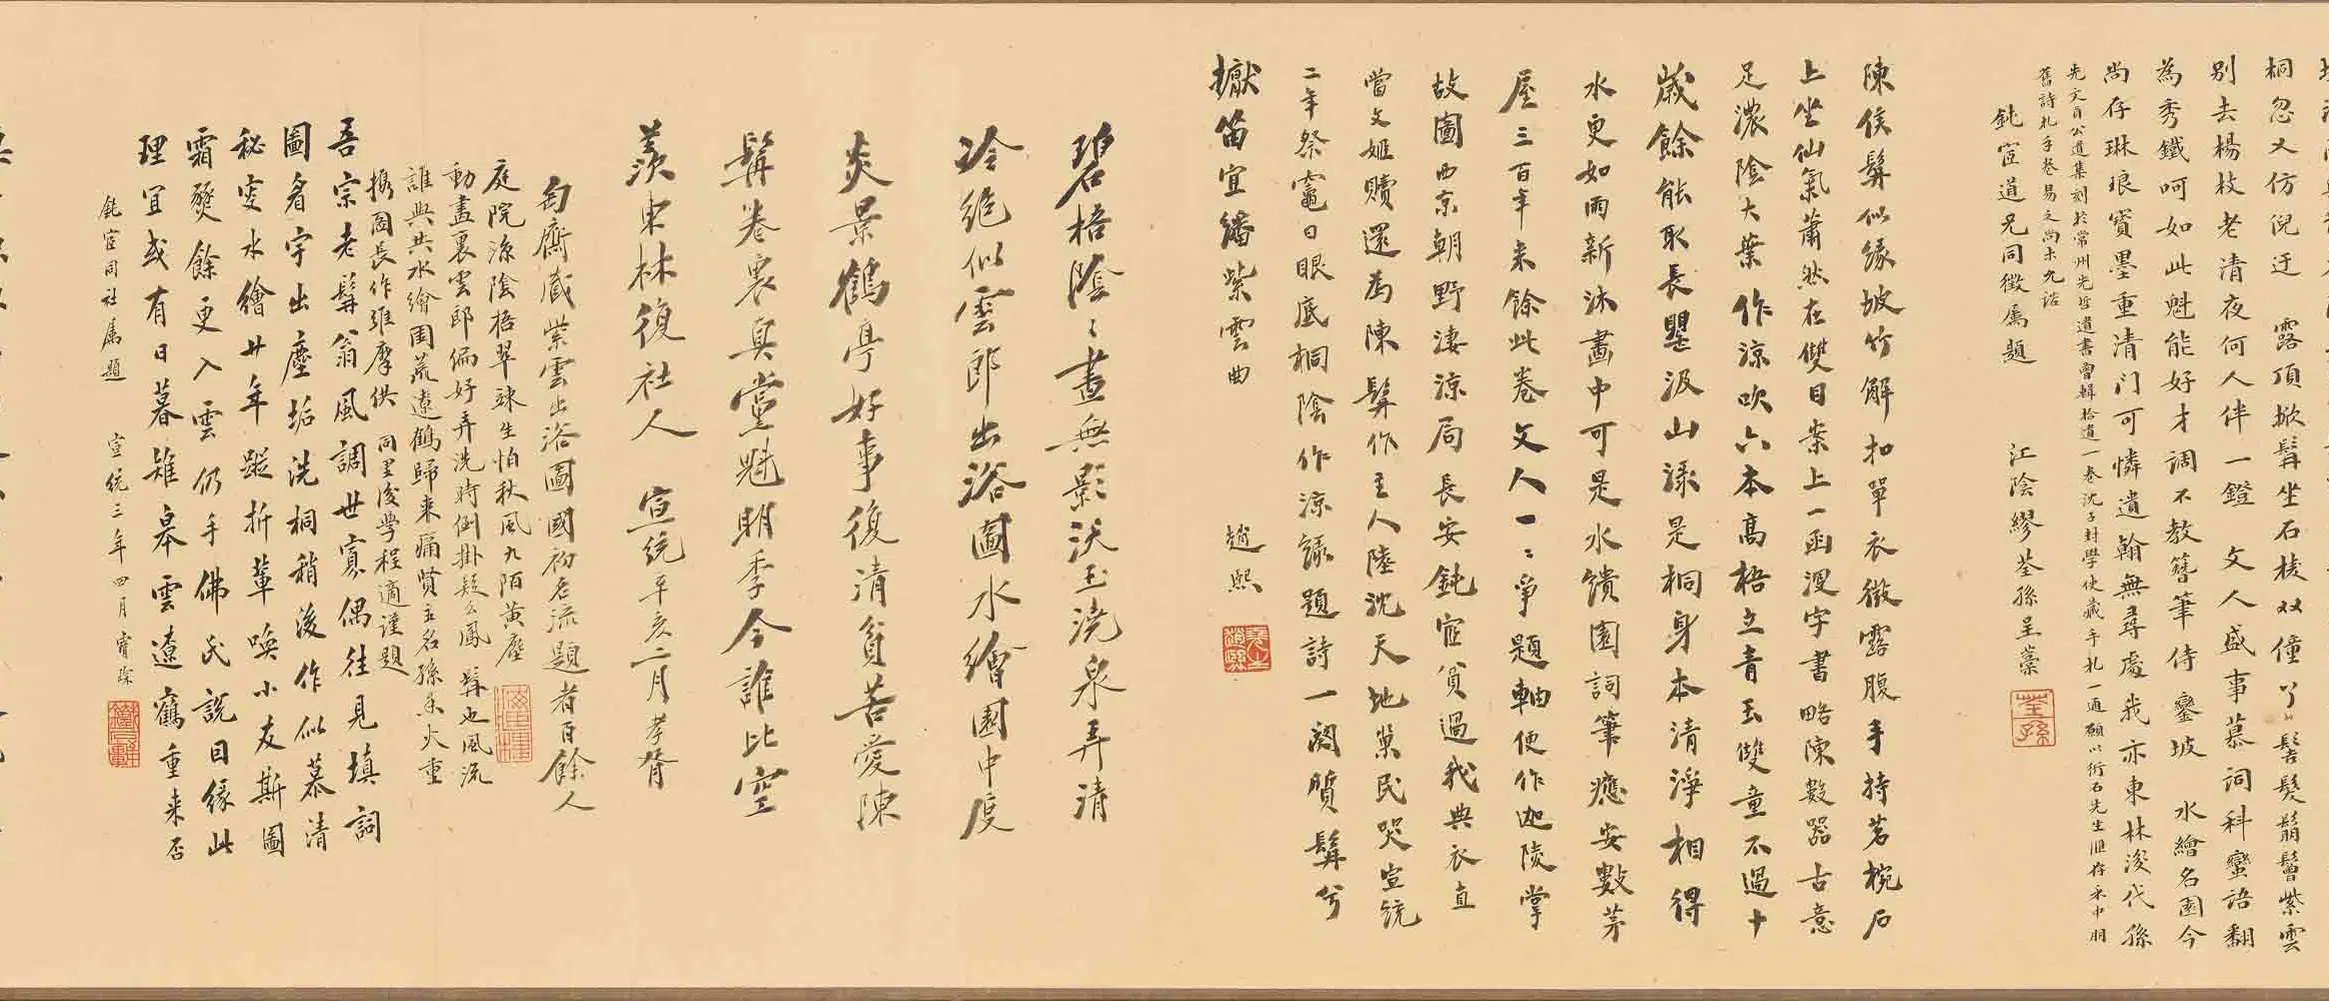 桐忽又仿倪迂　露頂掀髯坐石棱双僮丫髻髮鬅鬙紫雲
別去楊枝老清夜何人伴一鐙　文人盛事慕詞科蠻語翻
為秀鐵呵如此魁能好才調不教簪筆侍鑾坡　水繪名園今
尚存琳琅寶墨重清门可憐遺翰無尋處我亦東林後代孫
先文貞公遺集刻於常州先哲遺書曾輯拾遺一卷沈子封學使藏手札一通願以衎石先生匯存禾中朋
舊詩札手卷易之尚未允諾
鈍宧道兄同徵屬題　江陰繆荃孫呈藁
荃孫
陳侯髯似緣坡竹解扣單衣微露腹手持茗椀石
上坐仙氣蕭然在雙目案上一函沒字書略陳數器古意
足濃陰大葉作涼吹六本高梧立青玉雙童不過十
歲餘能取長罌汲山淥是桐身本清淨相得
水更如雨新沐畫中可是水繪園詞筆癒安數茅
屋三百年来餘此卷文人一〻爭題軸便作迦陵掌
故圖西京朝野淒涼局長安鈍宧貧過我典衣直
當文姬贖還為陳髯作主人陸沈天地萬民哭宣統
二年祭竈日眼底桐陰作涼綠題詩一闋質髯兮
擫笛宜繙紫雲曲　趙熙
碧梧陰〻畫無影沃玉澆泉弄清
冷絕似雲郎出浴圖水繪園中度
炎景鶴亭好事復清貧苦愛陳
髯卷裏真黨魁明季今誰比空
羨東林復社人　宣統辛亥二月孝胥
匋齋藏紫雲出浴圖國初名流題者百餘人
庭院涼陰梧翠竦生怕秋風九陌黃塵
動畫裏雲郎偏好弄洗時倒掛疑么鳳　髯也風流
誰與共水繪園荒遼鶴歸来痛賢主名孫香火重
携圖長作維摩供　同里後學程適謹題
吾宗老髯翁風調世寡偶往見填詞
圖眉宇出塵垢洗桐稍後作似慕清
秘叟水繪廿年蹤折輩喚小友斯圖
霜燹餘更入雲仍手佛氏說因緣此
理宜或有日暮雉皋雲遼鶴重来否
鈍宧同社屬題　宣統三年四月甯琛